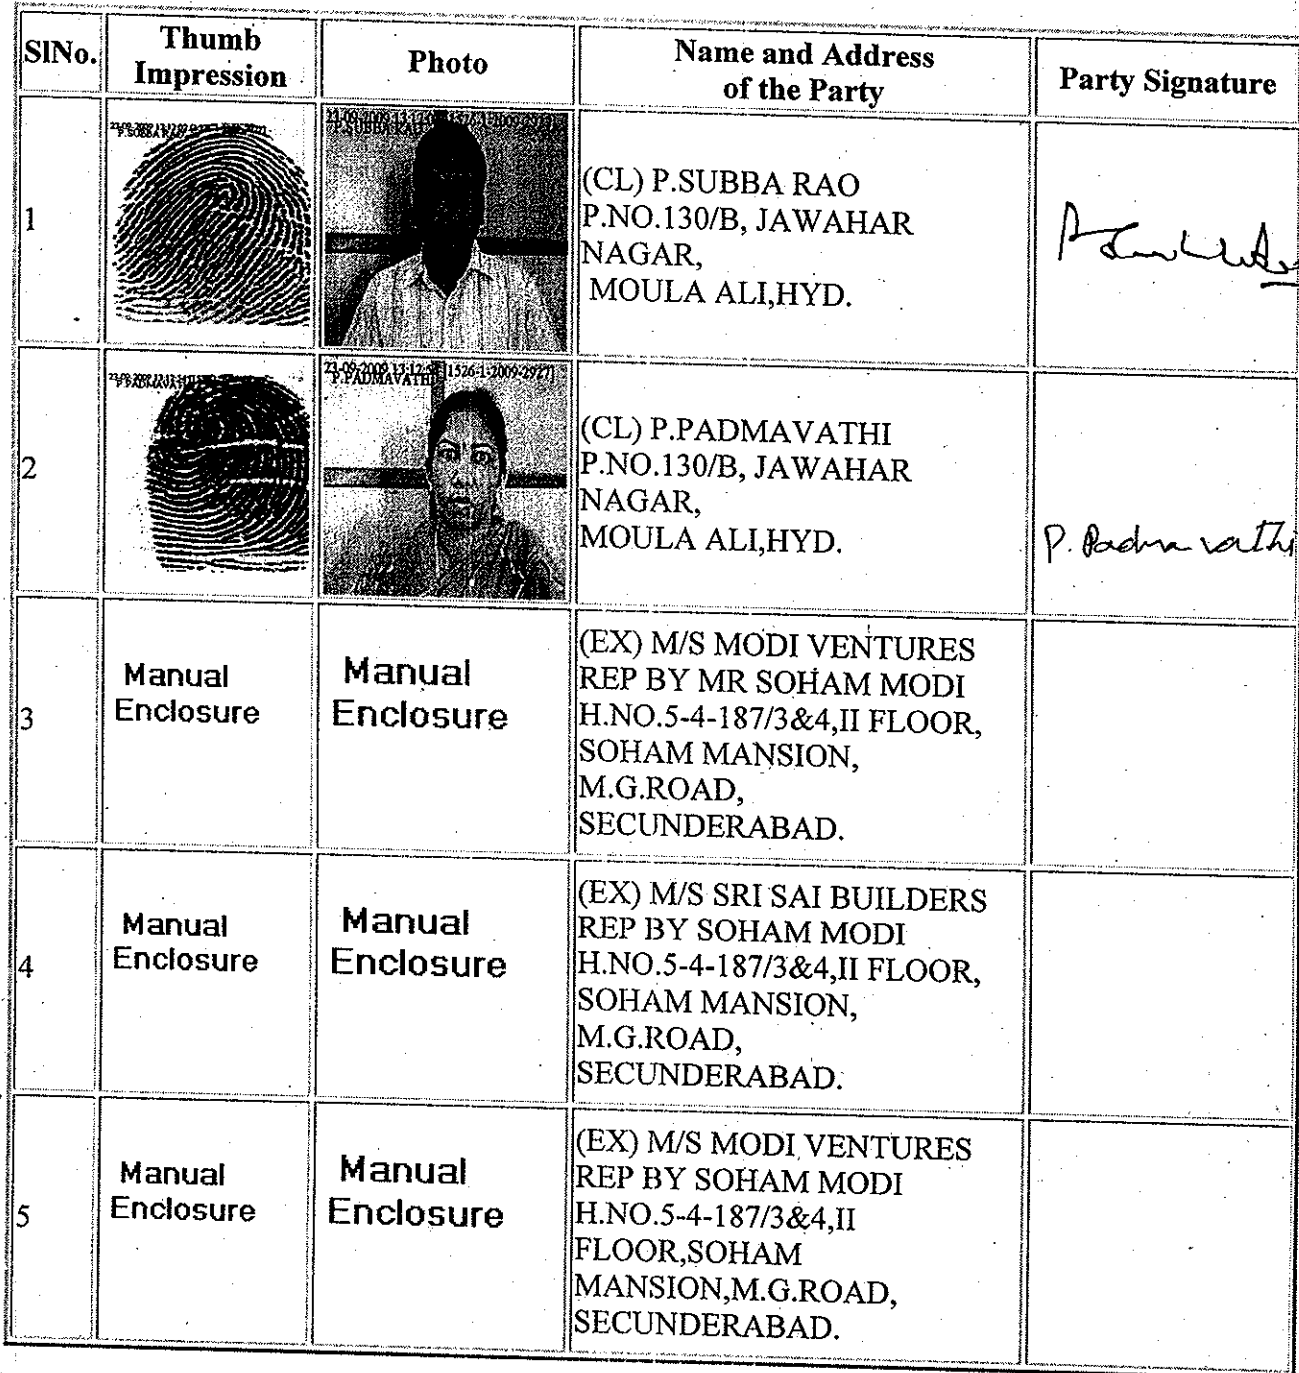 SlNo.
Thumb
Impression
Photo
Name and Address
of the Party
Party Signature
1
P.SUBBA RAO
(CL) P.SUBBA RAO
P.NO.130/B, JAWAHAR
NAGAR,
MOULA ALI,HYD.
2
P.PADMAVATHI
23-09-2009 13:12:5 [1526-1-2009-2927]
P.PADMAVATHI
(CL) P.PADMAVATHI
P.NO.130/B, JAWAHAR
NAGAR,
MOULA ALI,HYD.
P. Padmavathi
3
Manual
Enclosure
Manual
Enclosure
(EX) M/S MODI VENTURES
REP BY MR SOHAM MODI
H.NO.5-4-187/3&4,II FLOOR,
SOHAM MANSION,
M.G.ROAD,
SECUNDERABAD.
4
Manual
Enclosure
Manual
Enclosure
(EX) M/S SRI SAI BUILDERS
REP BY SOHAM MODI
H.NO.5-4-187/3&4,II FLOOR,
SOHAM MANSION,
M.G.ROAD,
SECUNDERABAD.
5
Manual
Enclosure
Manual
Enclosure
(EX) M/S MODI VENTURES
REP BY SOHAM MODI
H.NO.5-4-187/3&4,II
FLOOR,SOHAM
MANSION,M.G.ROAD,
SECUNDERABAD.